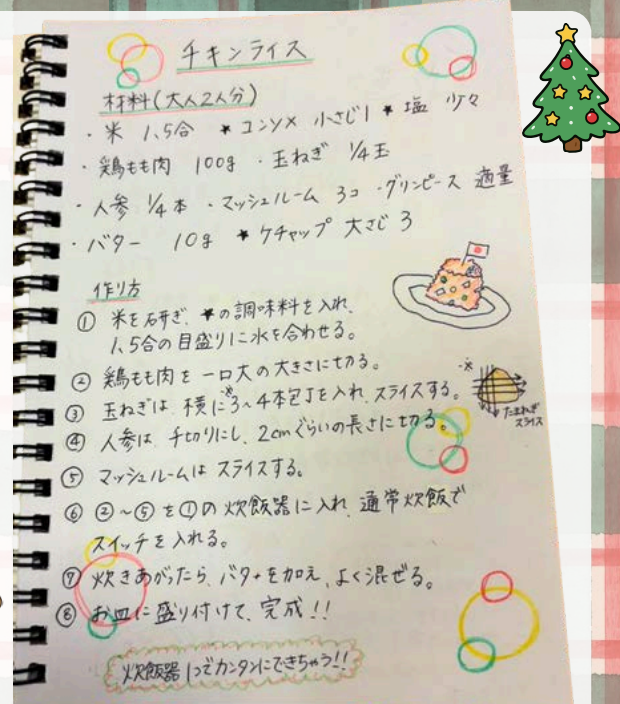 チキンライス
材料(大人2人分)
・米 1.5合 *コンソメ 小さじ1 *塩 少々
・鶏もも肉 100g ・玉ねぎ 1/4玉
・人参 1/4本 ・マッシュルーム 3コ ・グリンピース 適量
・バター 10g *ケチャップ 大さじ3
作り方
① 米を研ぎ、*の調味料を入れ、
1.5合の目盛りに水を合わせる。
② 鶏もも肉を一口大の大きさに切る。
③ 玉ねぎは、横に※3〜4本包丁を入れ、スライスする。
※
たまねぎ
スライス
④ 人参は、千切りにし、2cmぐらいの長さに切る。
⑤ マッシュルームはスライスする。
⑥ ②〜⑤を①の炊飯器に入れ、通常炊飯で
スイッチを入れる。
⑦ 炊きあがったら、バターを加え、よく混ぜる。
⑧ お皿に盛り付けて、完成!!
炊飯器1つでカンタンにできちゃう!!